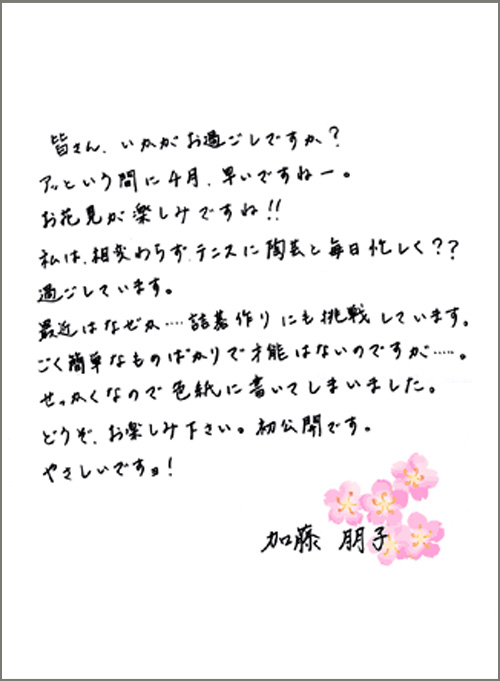 皆さん、いかがお過ごしですか?
アッという間に4月、早いですねー。
お花見が楽しみですね!!
私は、相変わらず、テニスに陶芸と毎日忙しく??
過ごしています。
最近はなぜか‥‥詰碁作りにも挑戦しています。
ごく簡単なものばかりで才能はないのですが‥‥。
せっかくなので色紙に書いてしまいました。
どうぞ、お楽しみ下さい。初公開です。
やさしいですョ!
加藤 朋子